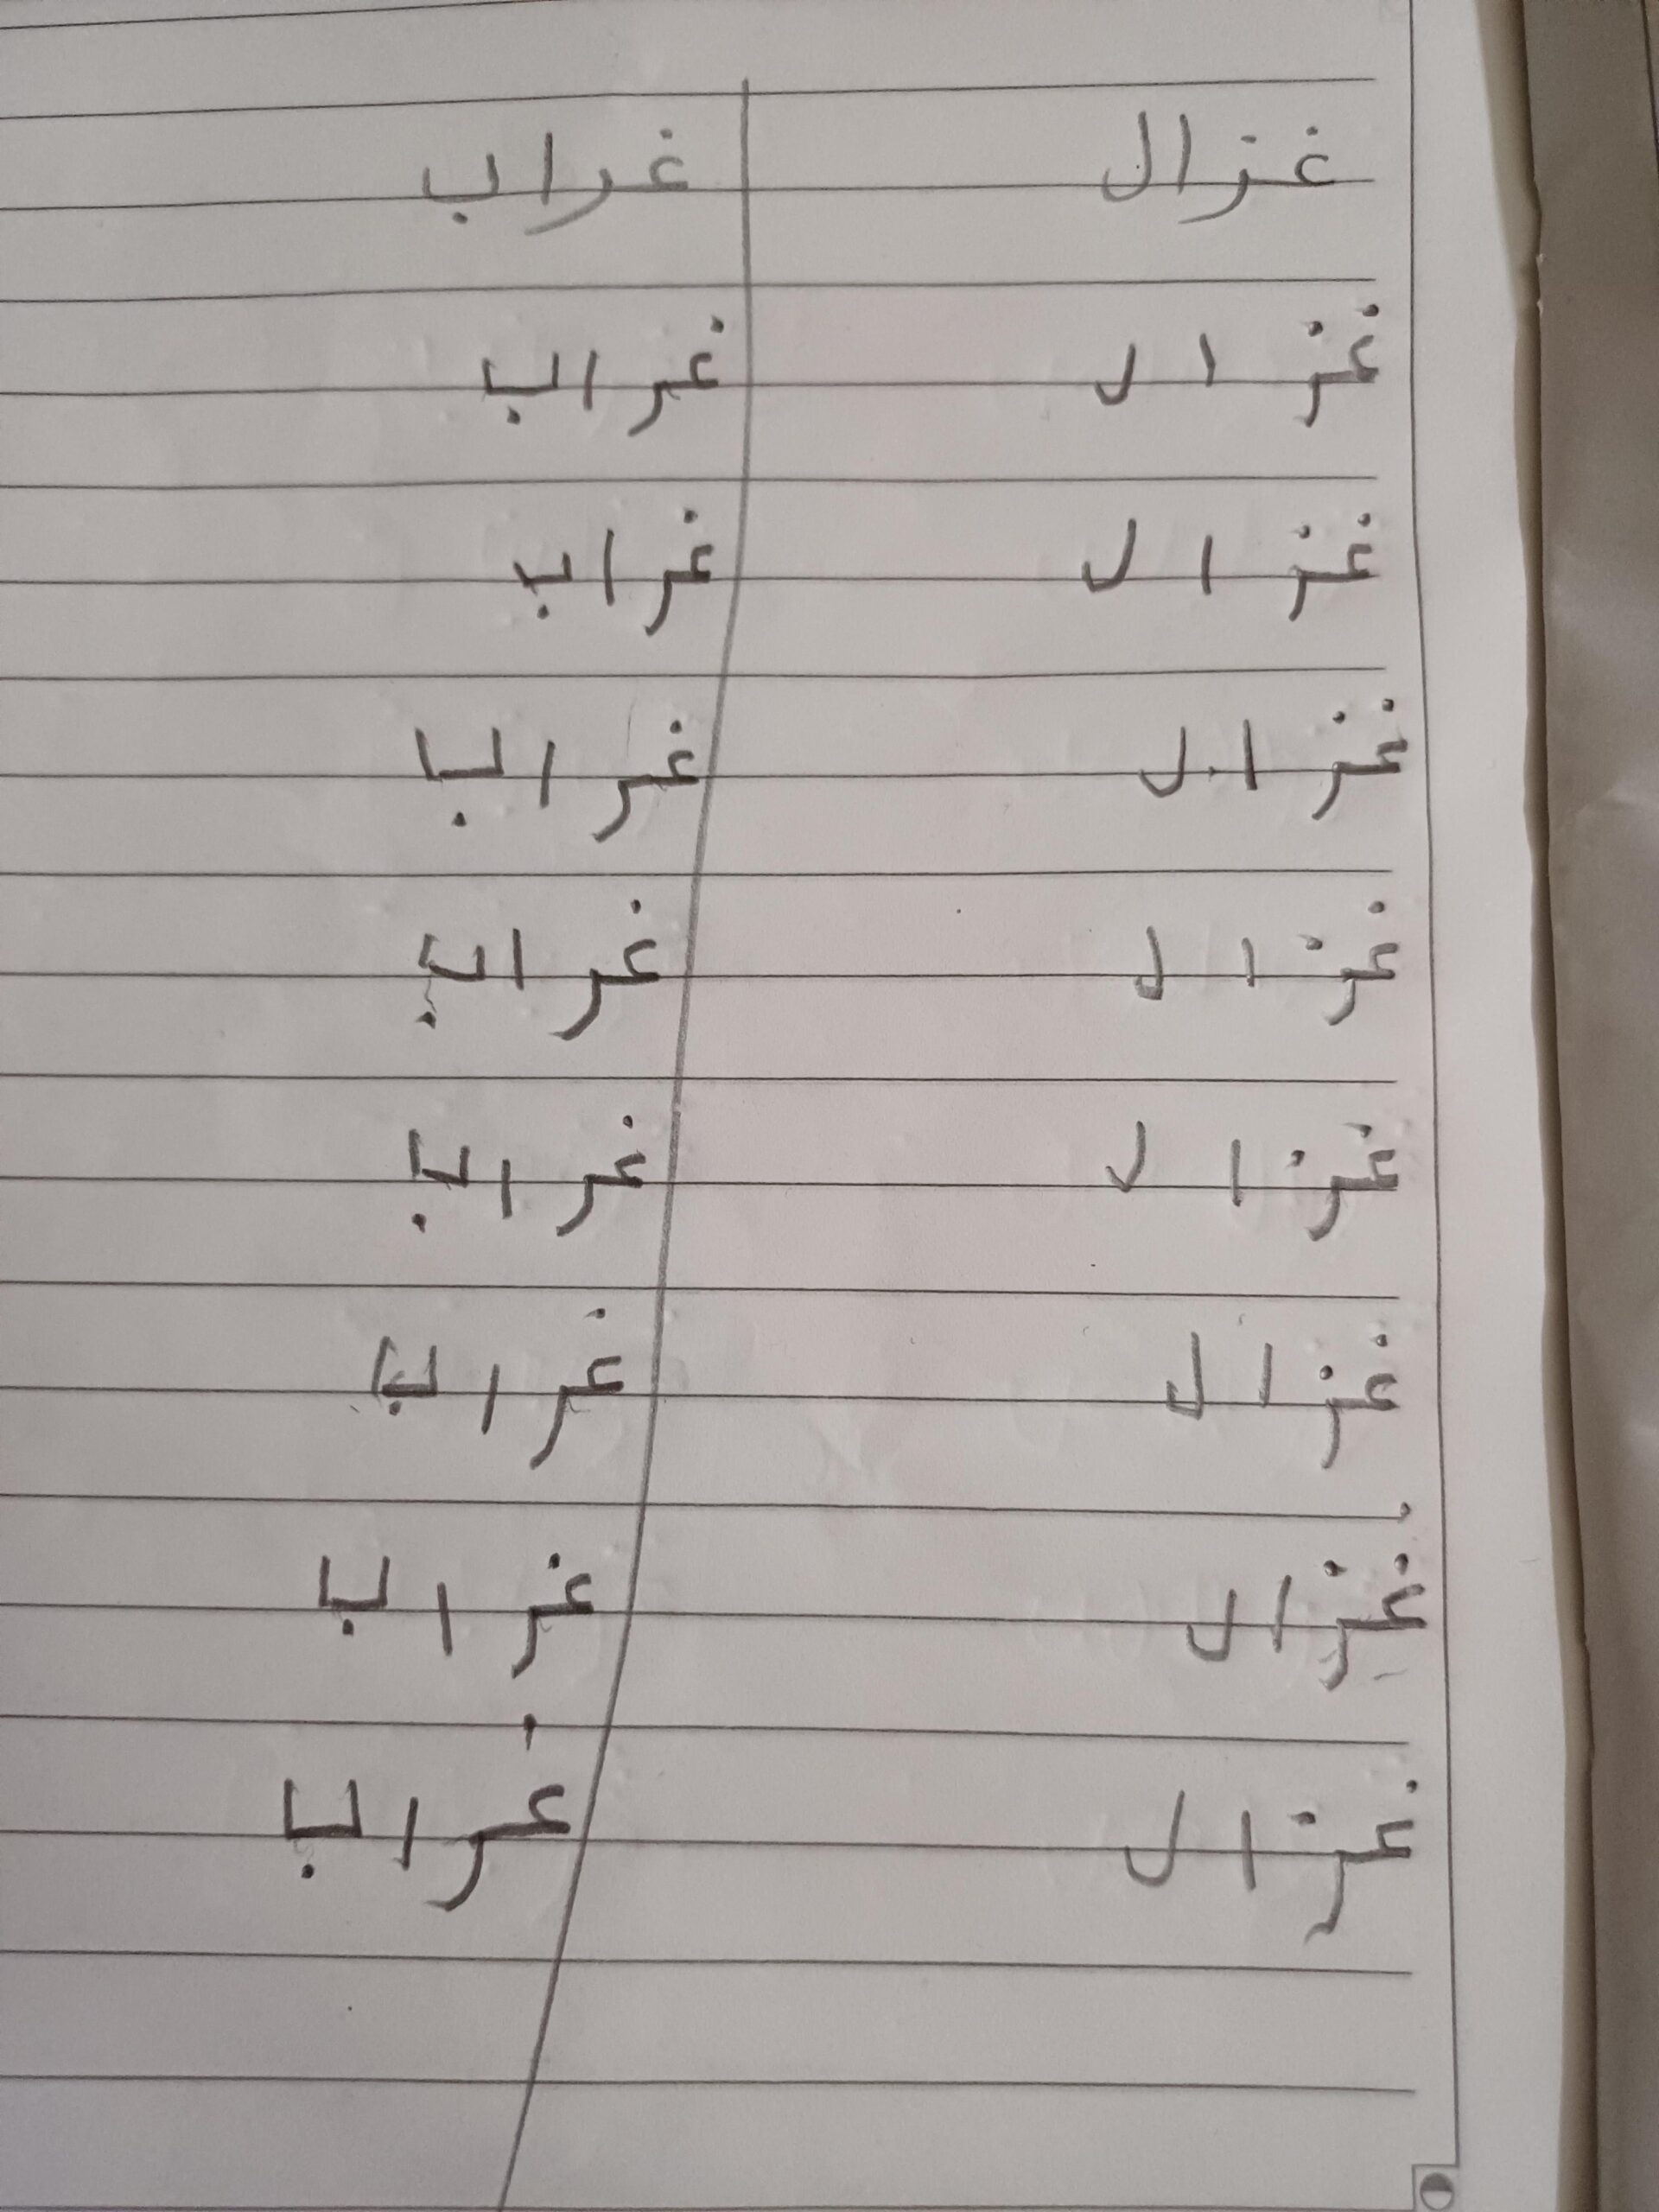 غزال غراب
غزال غراب
غزال غراب
غزال غراب
غزال غراب
غزال غراب
غزال غراب
غزال غراب
غزال غراب